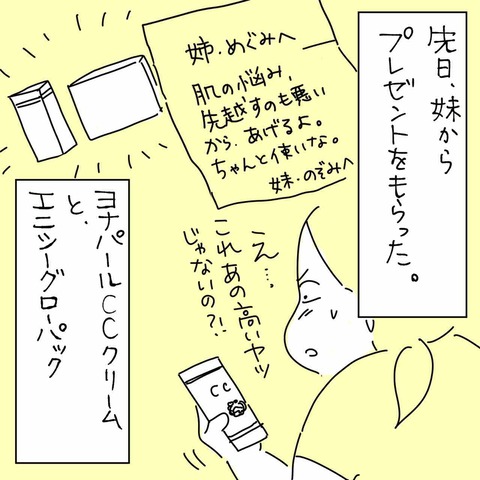 先日、妹から
プレゼントをもらった。
姉・めぐみへ
肌の悩み、
先越すのも悪い
から、あげるよ。
ちゃんと使いな。
妹・のぞみへ
え…
これあの高いヤツ
じゃないの？！
CC
ヨナパールCCクリーム
と、
エニシーグローパック